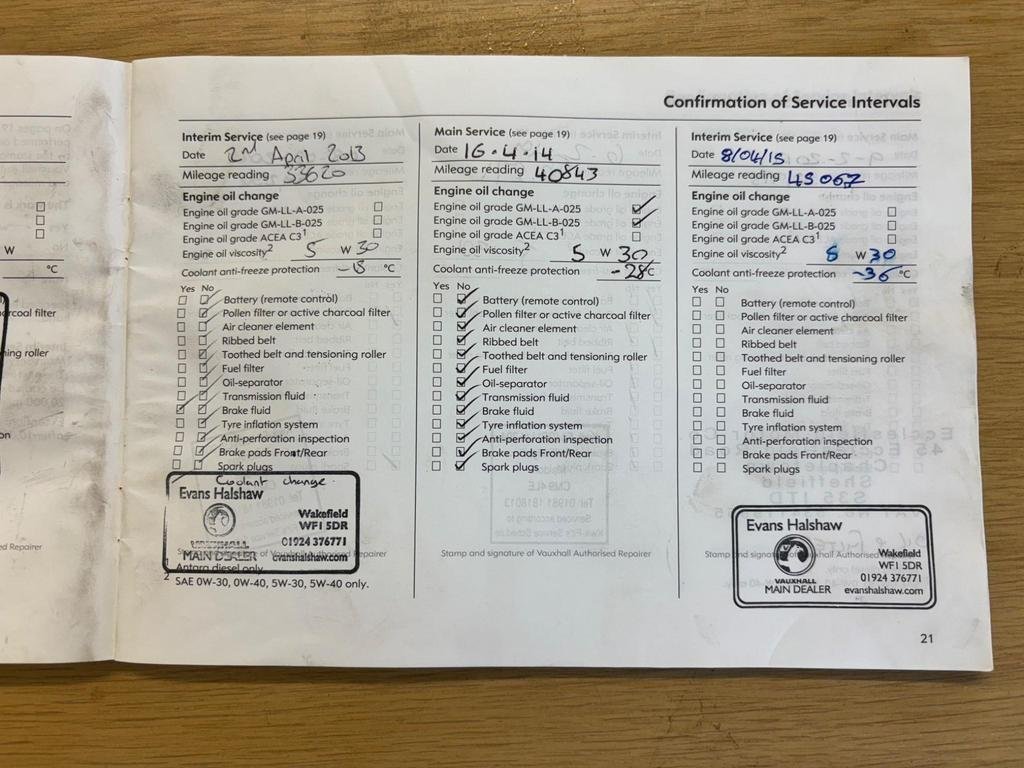 Confirmation of Service Intervals
W
°C
rcoal filter
ning roller
on
ed Repairer
Interim Service (see page 19)
Date 2nd April 2013
Mileage reading 33620
Engine oil change
Engine oil grade GM-LL-A-025
Engine oil grade GM-LL-B-025
Engine oil grade ACEA C3¹
Engine oil viscosity² 5 W 30
Coolant anti-freeze protection °C
Yes No
Battery (remote control)
Pollen filter or active charcoal filter
Air cleaner element
Ribbed belt
Toothed belt and tensioning roller
Fuel filter
Oil-separator
Transmission fluid
Brake fluid
Tyre inflation system
Anti-perforation inspection
Brake pads Front/Rear
Spark plugs
Coolant change
Evans Halshaw
Wakefield
WF1 5DR
01924 376771
VAUXHALL
MAIN DEALER evanshalshaw.com
Stamp and signature of Vauxhall Authorised Repairer
Antara diesel only
2 SAE 0W-30, 0W-40, 5W-30, 5W-40 only.
Main Service (see page 19)
Date 16.4.14
Mileage reading 40843
Engine oil change
Engine oil grade GM-LL-A-025
Engine oil grade GM-LL-B-025
Engine oil grade ACEA C3¹
Engine oil viscosity² 5 W 30
Coolant anti-freeze protection -28°C
Yes No
Battery (remote control)
Pollen filter or active charcoal filter
Air cleaner element
Ribbed belt
Toothed belt and tensioning roller
Fuel filter
Oil-separator
Transmission fluid
Brake fluid
Tyre inflation system
Anti-perforation inspection
Brake pads Front/Rear
Spark plugs
Stamp and signature of Vauxhall Authorised Repairer
Interim Service (see page 19)
Date 8/04/15
Mileage reading 45067
Engine oil change
Engine oil grade GM-LL-A-025
Engine oil grade GM-LL-B-025
Engine oil grade ACEA C3¹
Engine oil viscosity² 5 W 30
Coolant anti-freeze protection -36 °C
Yes No
Battery (remote control)
Pollen filter or active charcoal filter
Air cleaner element
Ribbed belt
Toothed belt and tensioning roller
Fuel filter
Oil-separator
Transmission fluid
Brake fluid
Tyre inflation system
Anti-perforation inspection
Brake pads Front/Rear
Spark plugs
Evans Halshaw
Stamp and signature of Vauxhall Authorised Repairer
Wakefield
WF1 5DR
01924 376771
VAUXHALL
MAIN DEALER evanshalshaw.com
21